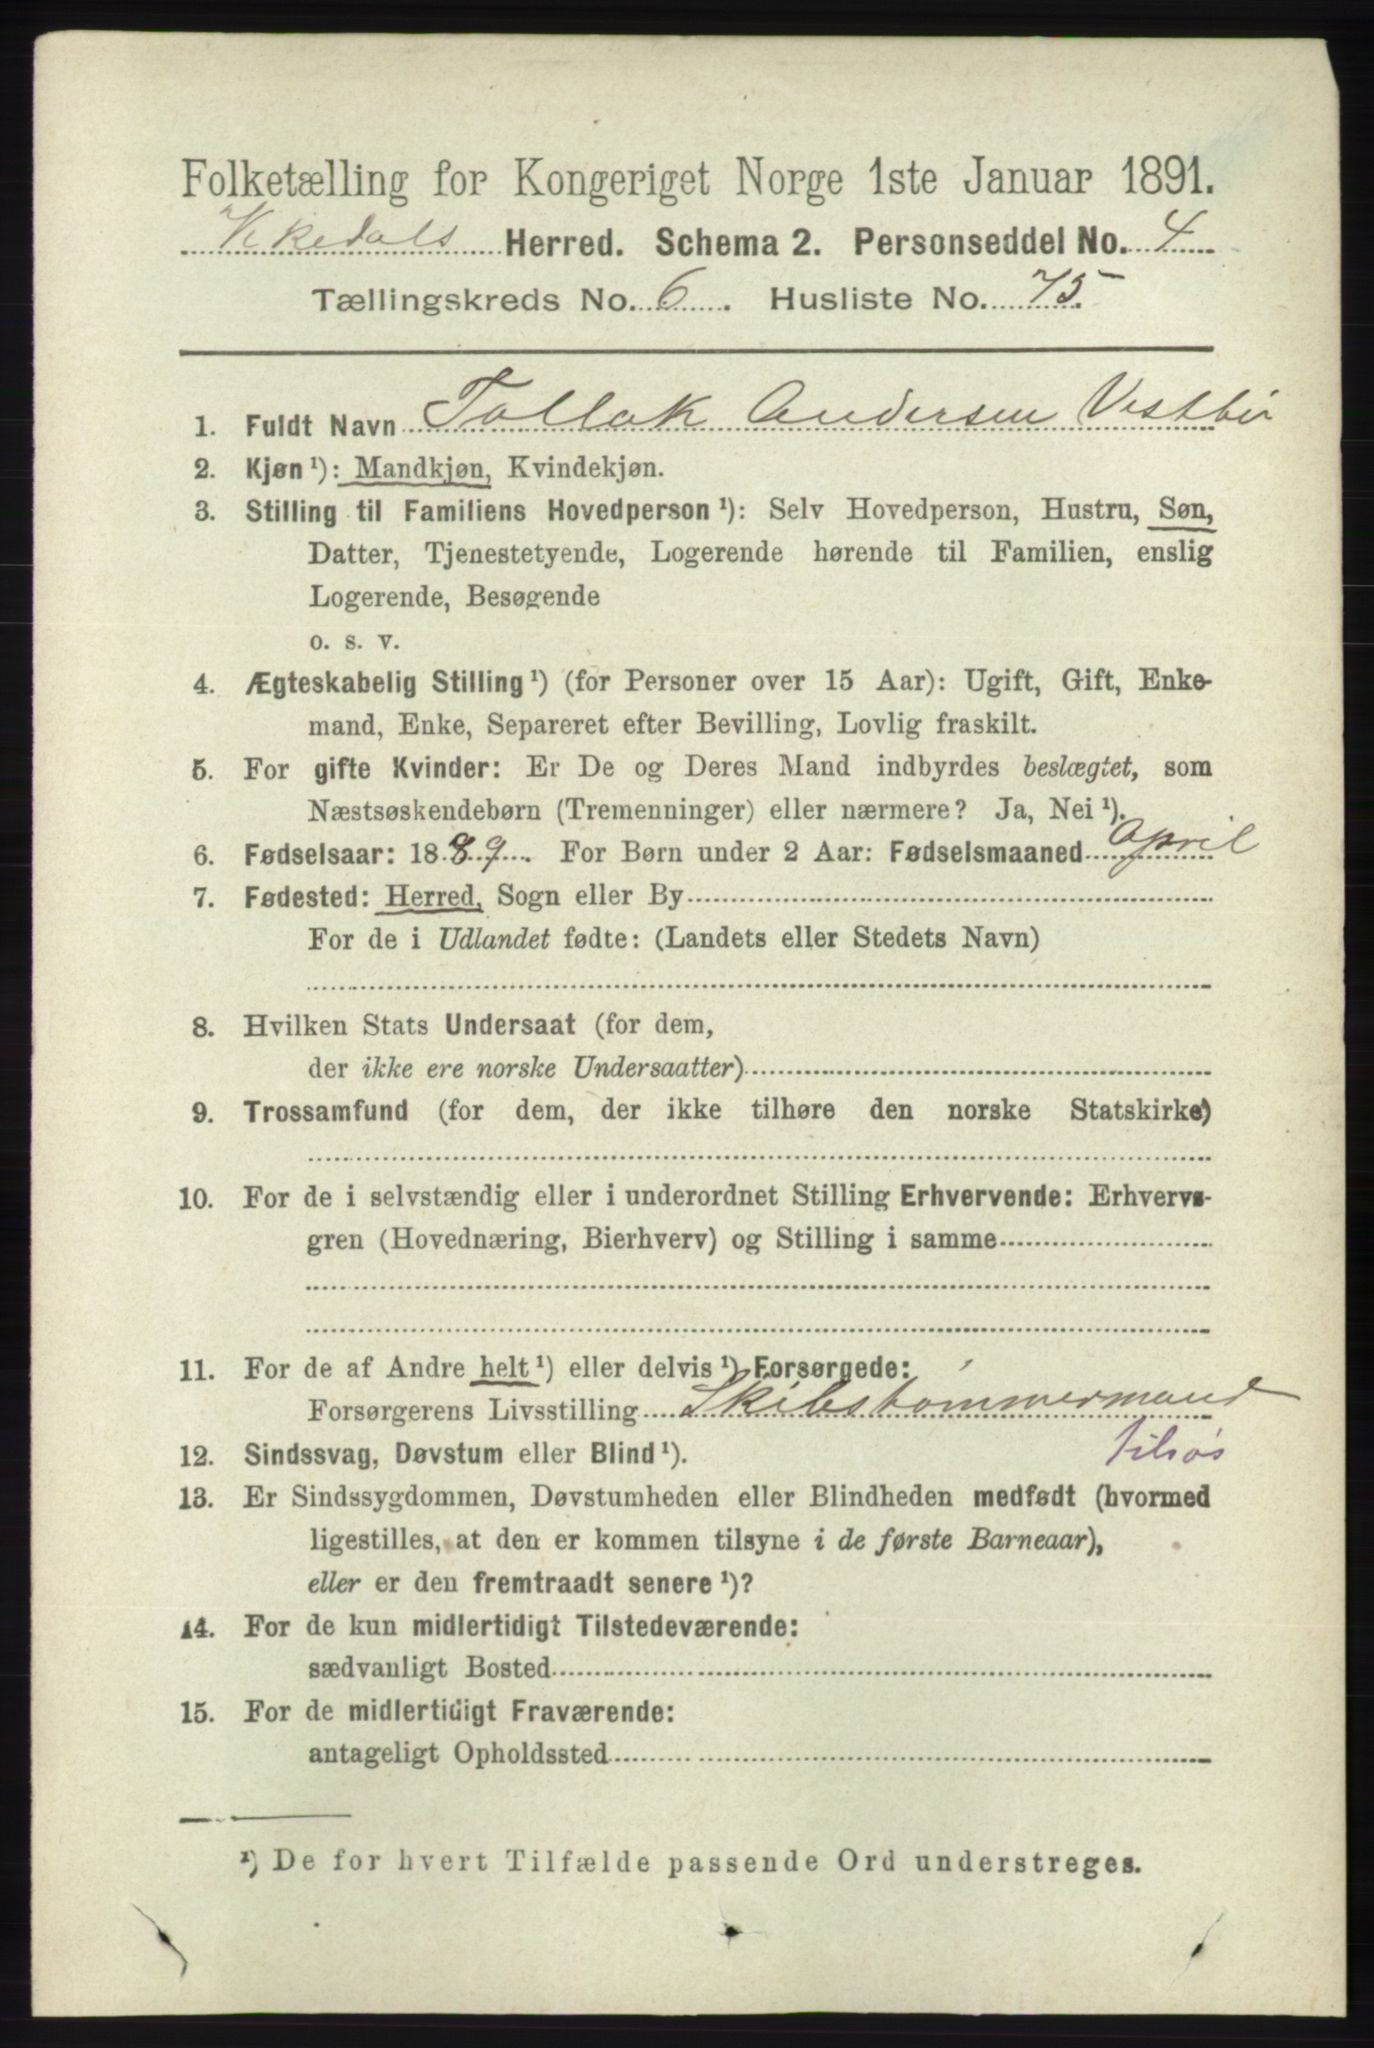 Folketælling for Kongeriget Norge 1ste Januar 1891.
Vikedals Herred. Schema 2. Personseddel No. 4
Tællingskreds No. 6. Husliste No. 75.
1. Fuldt Navn Tollak Andersen Vestbø
2. Kjøn ¹): Mandkjøn, Kvindekjøn.
3. Stilling til Familiens Hovedperson ¹): Selv Hovedperson, Hustru, Søn,
Datter, Tjenestetyende, Logerende hørende til Familien, enslig
Logerende, Besøgende
o. s. v.
4. Ægteskabelig Stilling ¹) (for Personer over 15 Aar): Ugift, Gift, Enke-
mand, Enke, Separeret efter Bevilling, Lovlig fraskilt.
5. For gifte Kvinder: Er De og Deres Mand indbyrdes beslægtet, som
Næstsøskendebørn (Tremenninger) eller nærmere? Ja, Nei ¹).
6. Fødselsaar: 1889. For Børn under 2 Aar: Fødselsmaaned April
7. Fødested: Herred, Sogn eller By
For de i Udlandet fødte: (Landets eller Stedets Navn)
8. Hvilken Stats Undersaat (for dem,
der ikke ere norske Undersaatter)
9. Trossamfund (for dem, der ikke tilhøre den norske Statskirke)
10. For de i selvstændig eller i underordnet Stilling Erhvervende: Erhvervs-
gren (Hovednæring, Bierhverv) og Stilling i samme
11. For de af Andre helt ¹) eller delvis ¹) Forsørgede:
Forsørgerens Livsstilling Skibstømmermand
12. Sindssvag, Døvstum eller Blind ¹). tilsøs
13. Er Sindssygdommen, Døvstumheden eller Blindheden medfødt (hvormed
ligestilles, at den er kommen tilsyne i de første Barneaar),
eller er den fremtraadt senere ¹)?
14. For de kun midlertidigt Tilstedeværende:
sædvanligt Bosted
15. For de midlertidigt Fraværende:
antageligt Opholdssted
¹) De for hvert Tilfælde passende Ord understreges.